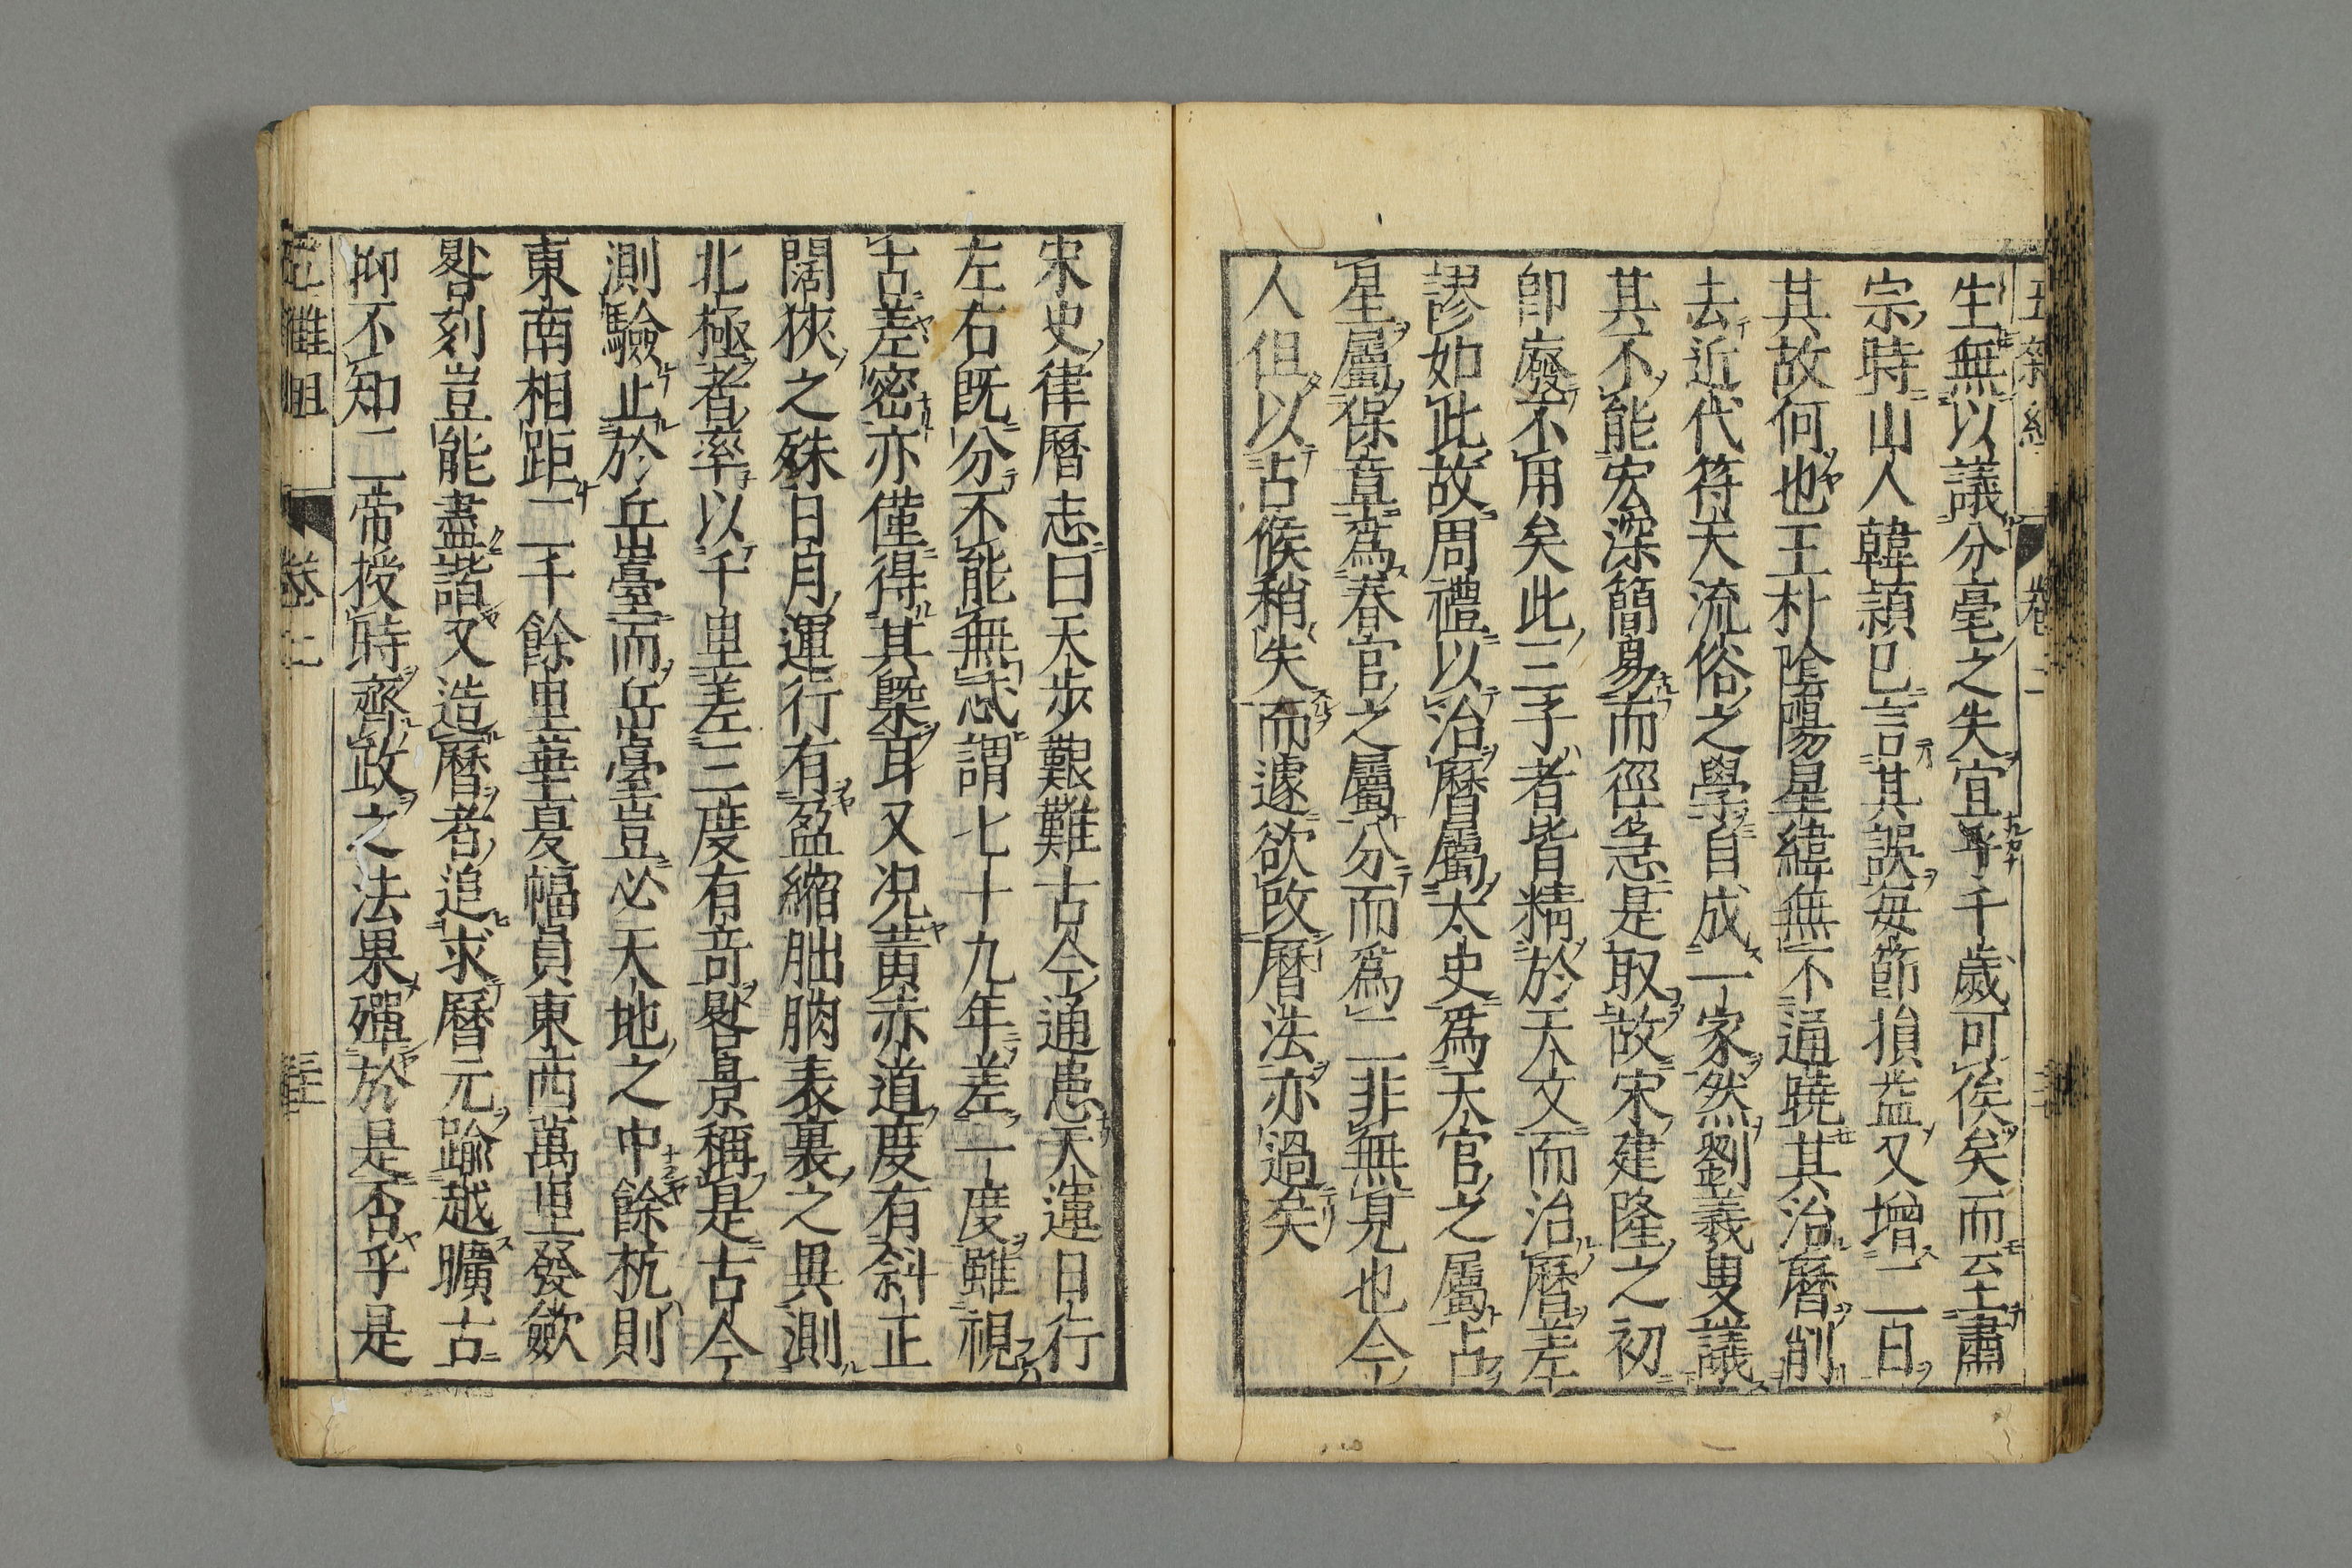 五雜組 卷二
生無以議分毫之失宜乎千歲可俟矣而云至肅
宗時山人韓頴已言其誤每節損益又增二日
其故何也王朴陰陽星緯無不通曉其治曆削
去近代符天流俗之學自成一家然劉羲叟議
其不能宏深簡易而徑急是取故宋建隆之初
卽廢不用矣此三子者皆精於天文而治曆差
謬如此故周禮以治曆屬太史爲天官之屬占
星屬保章爲春官之屬分而爲二非無見也今
人但以占候稍失而遽欲改曆法亦過矣
宋史律曆志曰天步艱難古今通患天運日行
左右既分不能無忒謂七十九年差一度雖視
古差密亦僅得其槩耳又况黃赤道度有斜正
闊狹之殊日月運行有盈縮朏朒表裏之異測
北極者率以千里差三度有奇晷景稱是古今
測驗止於岳臺而岳臺豈必天地之中餘杭則
東南相距二千餘里華夏幅員東西萬里發歛
晷刻豈能盡諧又造曆者追求曆元踰越曠古
抑不知二帝授時齊政之法果殫於是否乎是
五雜組 卷二